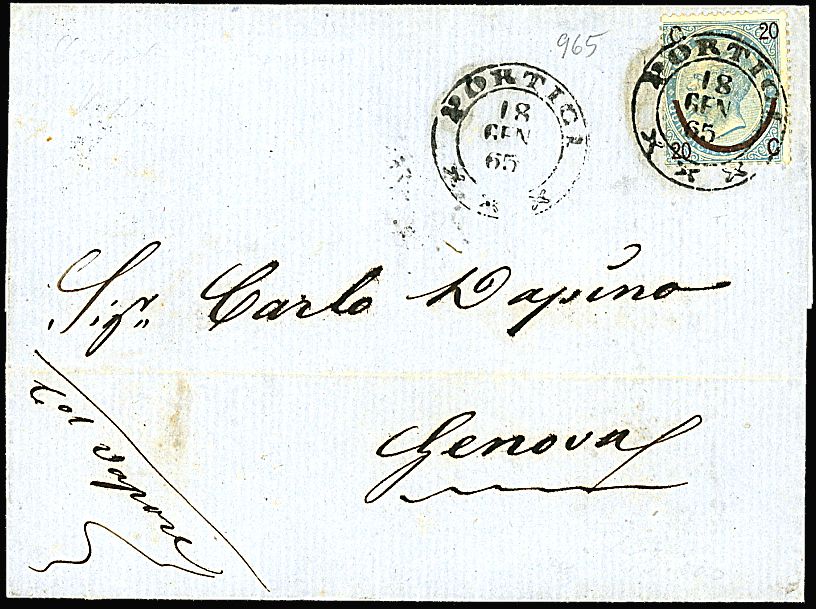 965
PORTICI
18
GEN
65
C 20
PORTICI
18
GEN
65
20 C
Sigr. Carlo Dapino
Genova
Col Vapore